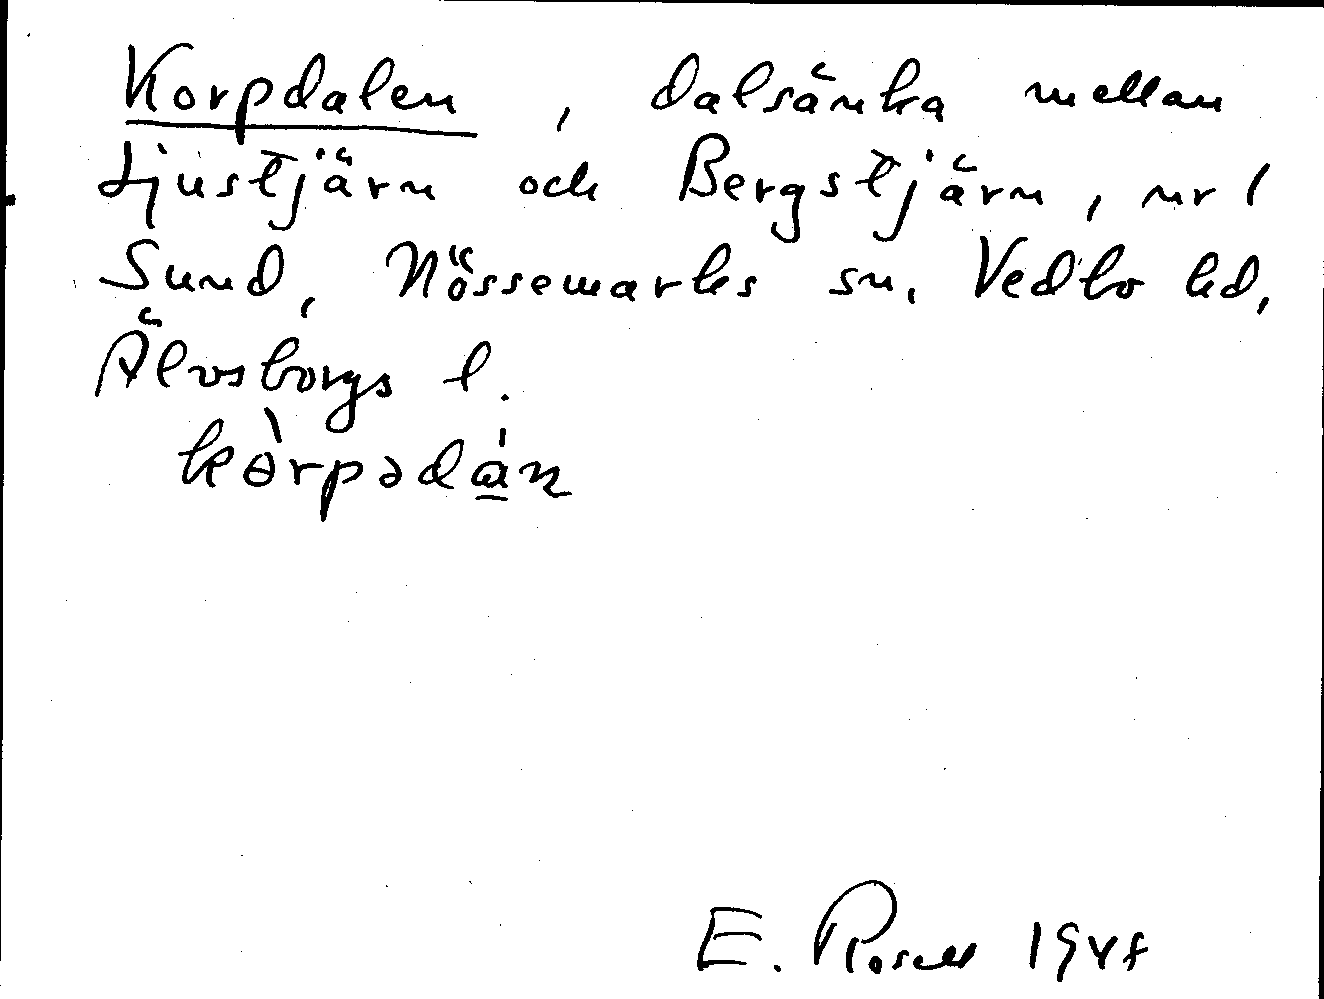 Korpdalen, dalsänka mellan
Ljustjärn och Bergstjärn, nr 1
Sund, Nössemarks sn, Vedbo hd,
Älvsborgs l.
kɵ̀rpədán
E. Rosell